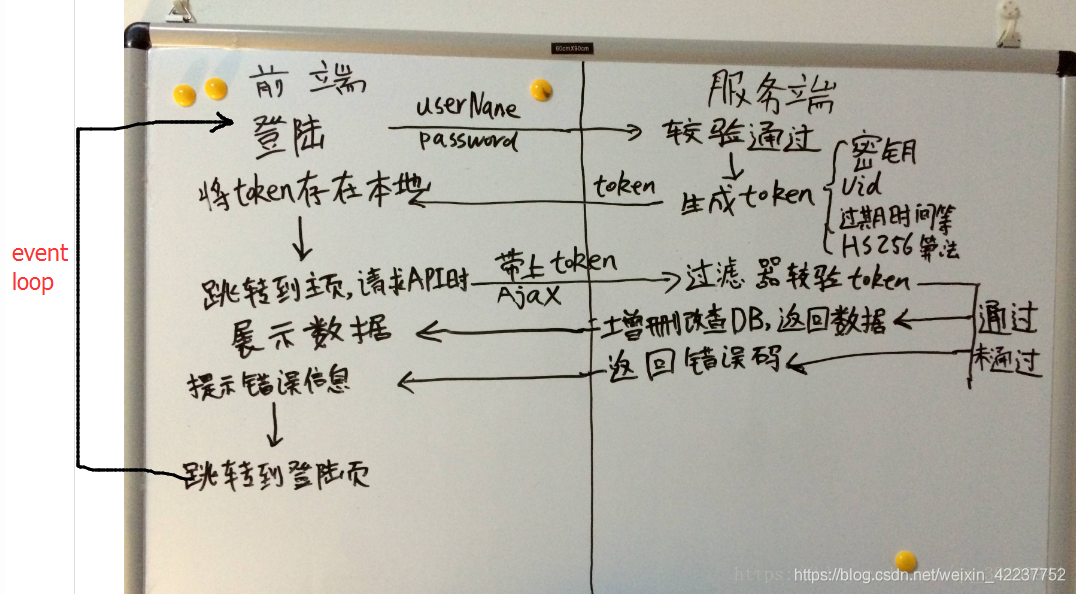 60cmX90cm
前端
服务端
userName
登陆
password
较验通过
密钥
Uid
过期时间等
HS256算法
将token存在本地
token
生成token
event
loop
跳转到主页,请求API时
带上token
AjaX
过滤器较验token
展示数据
增删改查DB,返回数据
通过
提示错误信息
返回错误码
未通过
跳转到登陆页
https://blog.csdn.net/weixin_42237752